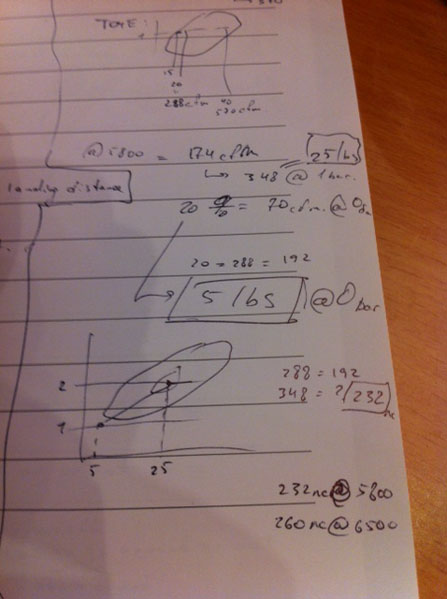 TOYE:
1
15
20
40
288 cfm
570 cfm
@ 5800 = 174 cfm
25 lbs
↳ 348 @ 1 bar.
landing distance
20 % = 70 cfm. @ 0
20 = 288 = 192
5 lbs @ 0 bar
2
1
5 25
288 = 192
348 = ? 232
232 nc @ 5800
260 nc @ 6500